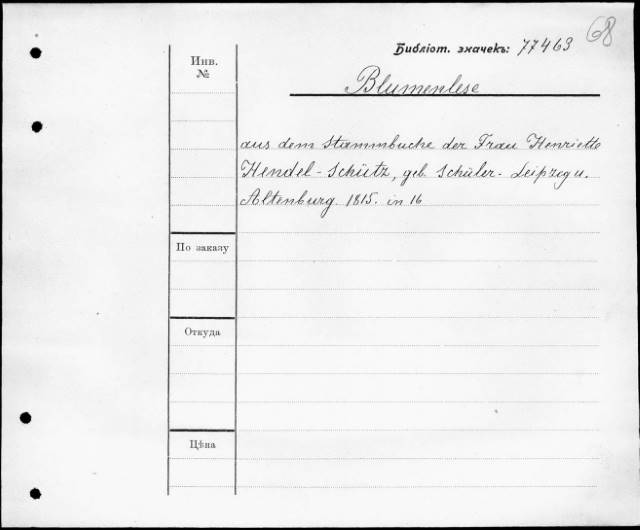 68
Библіот. значекъ: 77463
Инв. №
Blumenlese
aus dem Stammbuche der Frau Henriette
Hendel-Schütz, geb. Schüler- Leipzig u.
Altenburg. 1815. in 16
По заказу
Откуда
Цѣна